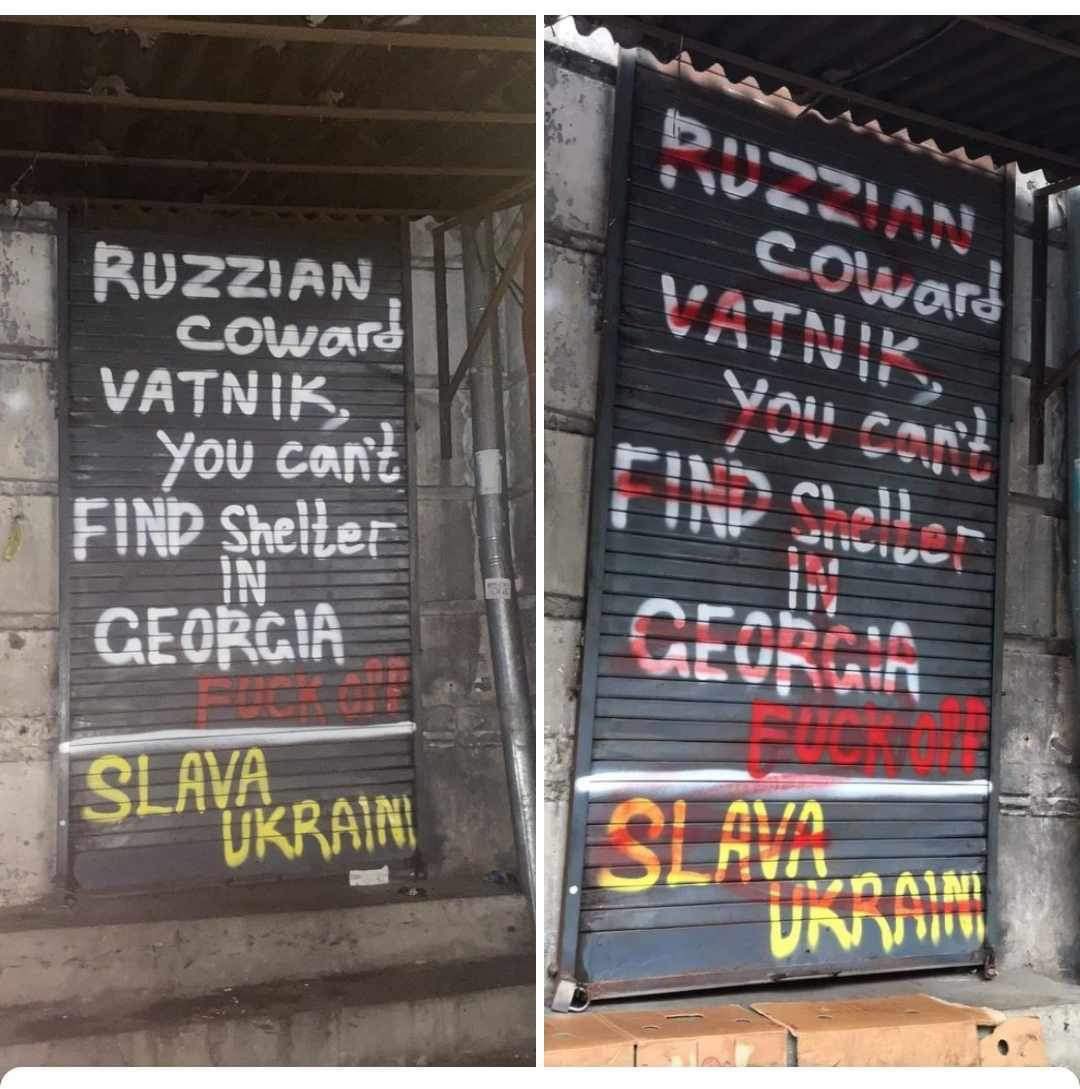 RUZZIAN
COWard
VATNIK,
YOU can't
FIND Shelter
IN
GEORGIA
FUCK OFF
SLAVA
UKRAINI
RUZZIAN
COWard
VATNIK,
YOU can't
FIND Shelter
IN
GEORGIA
FUCK OFF
SLAVA
UKRAINI